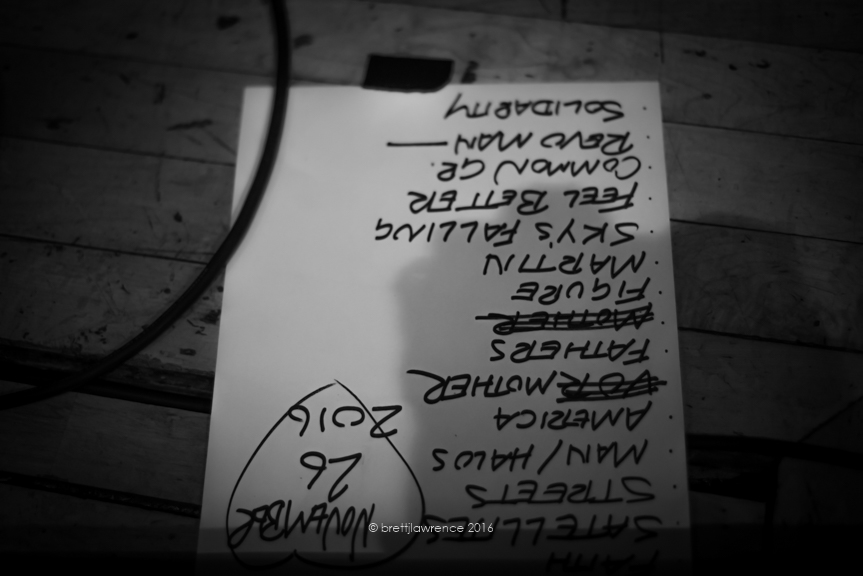 FAITH
SATELLITES
STREETS
MAN / HALOS
AMERICA
MOTHER
FATHERS
MOTHER
FIGURE
MARTIN
SKY'S FALLING
FEEL BETTER
COMMON GR.
REVO MAN —
SOLIDARITY
NOVEMBER
26
2016
© brettjlawrence 2016